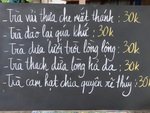 - Trà vải thưa che mắt thánh: 30k
- Trà đào lại quá khứ: 30k
- Trà dừa lười trôi lông lông: 30k
- Trà thạch dừa lông ta đã: 30k
- Trà cam kạt chia quyền xẻ thúy: 30k